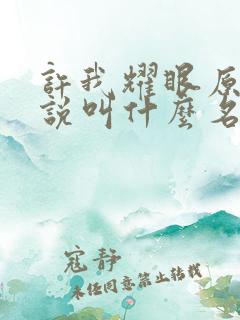 許我耀眼原
說叫什麼名
寇静
未经同意禁止转载